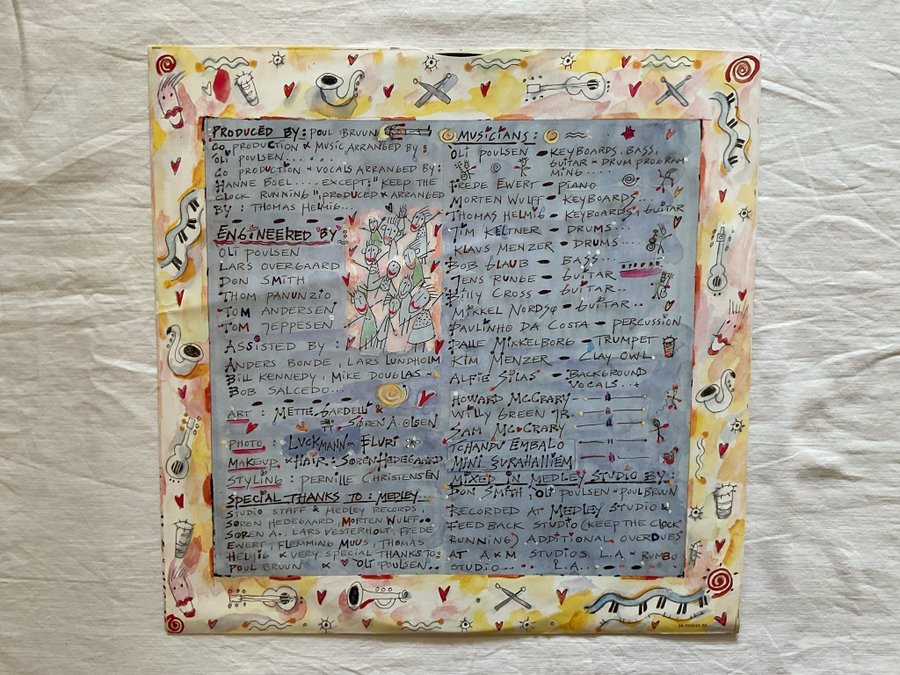 PRODUCED BY: POUL BRUUN
CO PRODUCTION & MUSIC ARRANGED BY:
OLI POULSEN......
CO PRODUCTION & VOCALS ARRANGED BY:
HANNE BOEL.... EXCEPT: "KEEP THE
CLOCK RUNNING" PRODUCED & ARRANGED
BY: THOMAS HELMIG...
ENGINEERED BY:
OLI POULSEN
LARS OVERGAARD
DON SMITH
THOM PANUNZIO
TOM ANDERSEN
TOM JEPPESEN
ASSISTED BY:
ANDERS BONDE, LARS LUNDHOLM
BILL KENNEDY, MIKE DOUGLAS-
BOB SALCEDO...
ART: METTE GARDELL &
SØREN A. OLSEN
PHOTO: LUCKMANN- ELURI
MAKEUP & HAIR: SØREN HEDEGAARD
STYLING: PERNILLE CHRISTENSEN
SPECIAL THANKS TO: MEDLEY...
STUDIO STAFF & MEDLEY RECORDS,
SØREN HEDEGAARD, MORTEN WULFF..
SØREN A., LARS VESTERHOLT, FREDE
EWERT, FLEMMING MUUS, THOMAS
HELMIG & VERY SPECIAL THANKS TO:
POUL BRUUN & OLI POULSEN...
MUSICIANS:
OLI POULSEN - KEYBOARDS, BASS,
GUITAR - DRUM PROGRAM
MING.....
FREDE EWERT - PIANO
MORTEN WULFF - KEYBOARDS..
THOMAS HELMIG - KEYBOARDS, GUITAR
JIM KELTNER - DRUMS...
KLAUS MENZER - DRUMS....
BOB GLAUB - BASS...
JENS RUNGE - GUITAR
BILLY CROSS - GUITAR....
MIKKEL NORDSØ - GUITAR..
PAULINHO DA COSTA - PERCUSSION
PALLE MIKKELBORG - TRUMPET
KIM MENZER - CLAY OWL
ALFIE SILAS - BACKGROUND
VOCALS..+
HOWARD McCRARY
WILLY GREEN JR.
SAM McCRARY
TCHANDU EMBALO
MINI SURAHALLIEM
MIXED IN MEDLEY STUDIO BY:
DON SMITH, OLI POULSEN - POUL BRUUN
RECORDED AT MEDLEY STUDIO &
FEED BACK STUDIO (KEEP THE CLOCK
RUNNING) ADDITIONAL OVERDUBS
AT A&M STUDIOS L.A & RUMBO
STUDIO.... L.A...